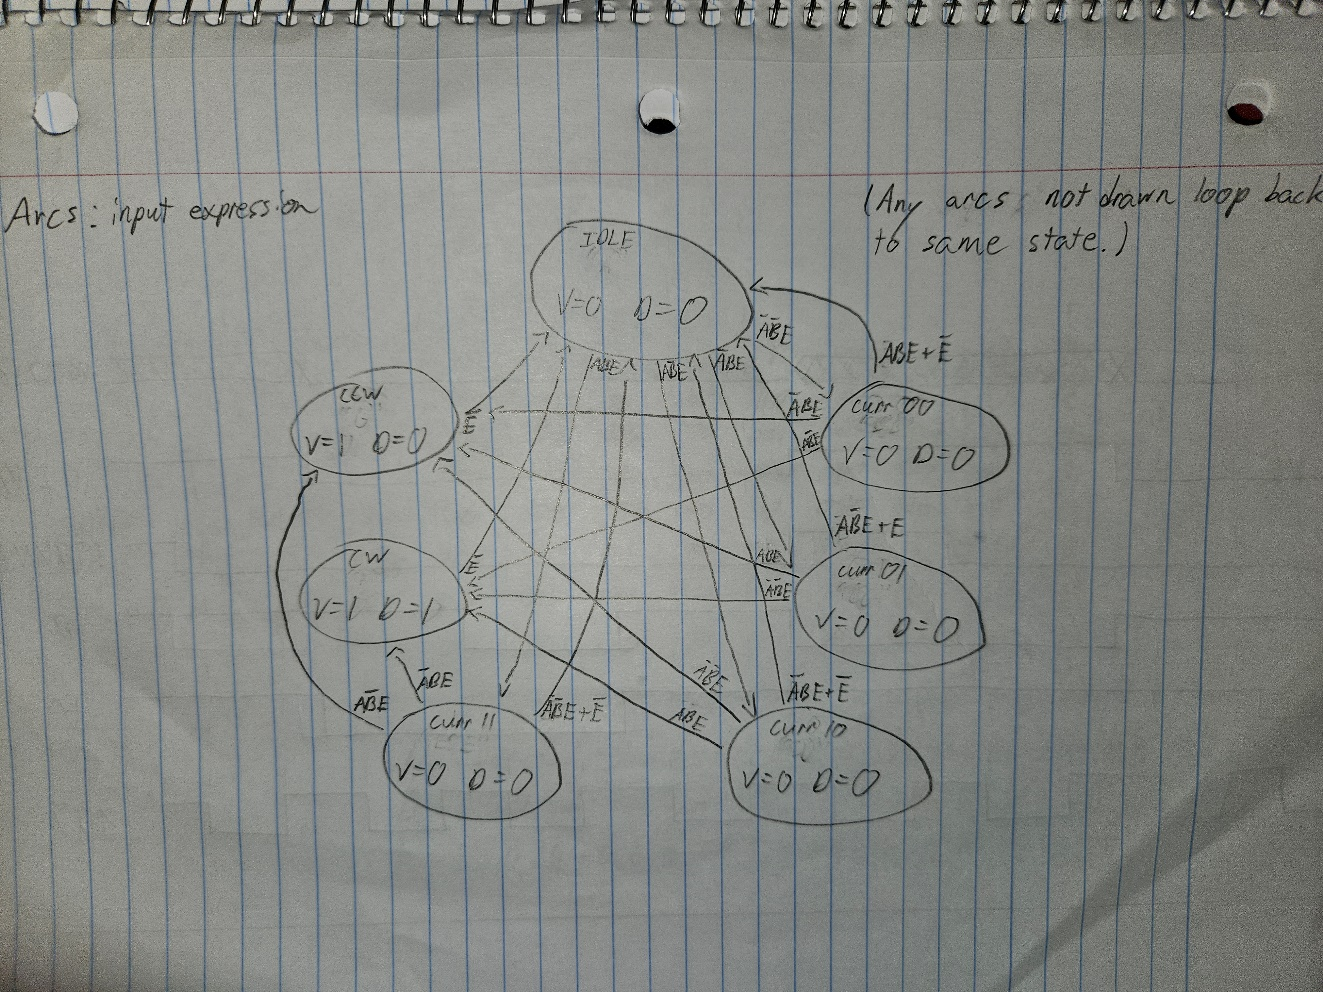 Arcs: input expression
(Any arcs not drawn loop back
to same state.)
IDLE
V=0 D=0
ABE
AB̅E
A̅BE
A̅B̅E
ABE+E̅
CCW
V=1 D=0
E̅
A̅BE
AB̅E
curr 00
V=0 D=0
AB̅E+E
CW
V=1 D=1
E̅
ABE
A̅B̅E
curr 01
V=0 D=0
AB̅E
A̅BE
A̅B̅E+E̅
A̅B̅E
ABE
A̅BE+E̅
curr 11
V=0 D=0
curr 10
V=0 D=0